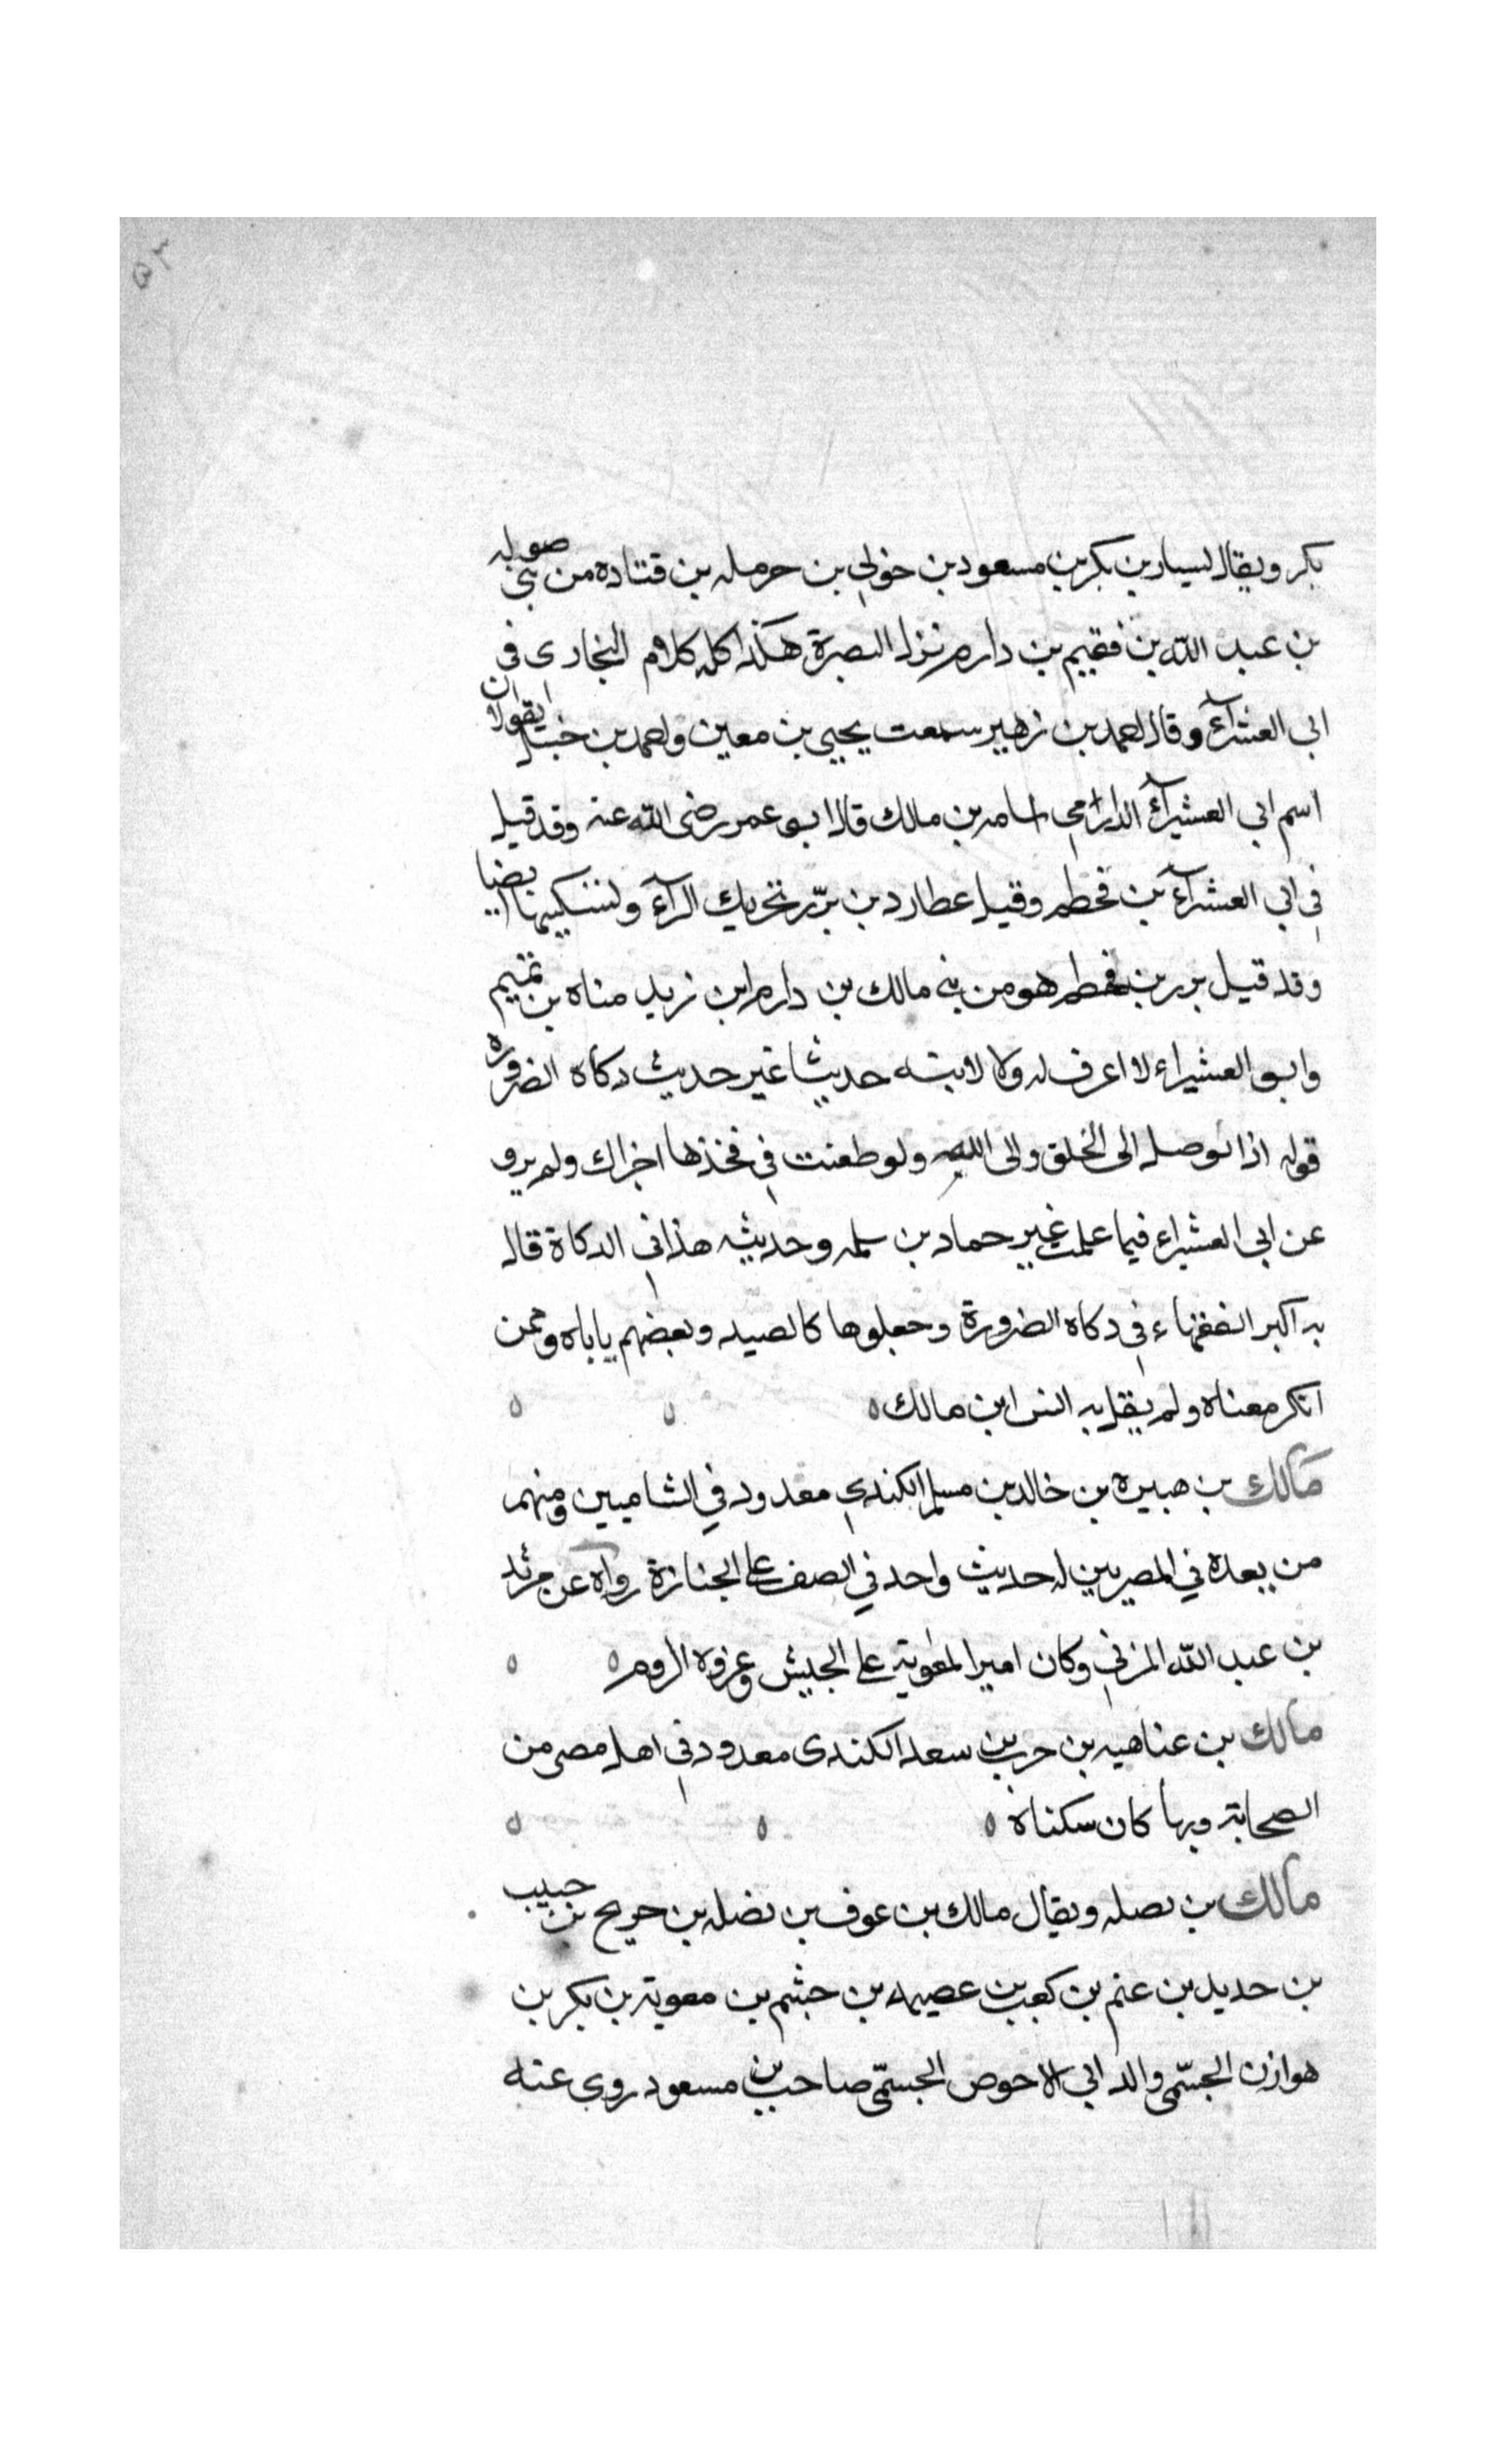 ٥٣
بكر ويقال ليسار بن بكر بن مسعود بن خولي بن حرمله بن قتاده من بني صوله
بن عبد الله بن فقيم بن دارم نزل البصرة هكذا كله كلام البخارى في
ابى العشرآء وقال احمد بن زهير سمعت يحيى بن معين واحمد بن حنبل يقولا ان
اسم ابي العشيرآء الدارمي اسامه بن مالك قال ابو عمر رضى الله عنه وقد قيل
في ابي العشرآء بن قحطم وقيل عطارد بن برّر تحريك الرآء وتسكينها ايضا
وقد قيل برر بن قحطم هو من بني مالك بن دارم ابن زيد مناه بن تميم
وابو العشيراء لا اعرف له ولا لابيه حديثا غير حديث دكاه الضروره
قوله اذا توصل الى الحلق والى اللبه ولو طعنت في فخذها اجزاك ولم يرو
عن ابي العشيراء فيما علمت غير حماد بن سلمه وحديثه هذا في الدكاة قال
به اكبر الفقهاء في دكاه الضرورة وجعلوها كالصيد وبعضهم ياباه وممن
انكر معناه ولم يقل به انس ابن مالك ه
مالك بن هبيره بن خالد بن مسلم الكندي معدود في الشاميين ومنهم
من يعده في المصريين له حديث واحد في الصف على الجنازة رواه عن مرثد
بن عبد الله المزني وكان اميرا لمعوية على الجيش وغزوه الروم ه
مالك بن عناهيه بن حرب بن سعد الكندى معدود في اهل مصر من
الصحابة وبها كان سكناه ه
مالك بن نصله ويقال مالك بن عوف بن نضله بن حريج بن حبيب
بن حديد بن عنم بن كعب بن عصيمه بن جشم بن معوية بن بكر بن
هوازن الجشمى والد ابي الاحوص الجشمى صاحب بن مسعود روى عنه